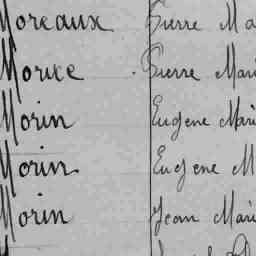 Moreaux Pierre Ma
Morice Pierre Mari
Morin Eugene Mari
Morin Eugene M
Morin Jean Mari